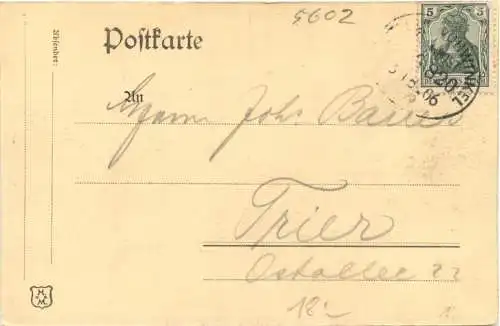 5602
Postkarte
5 5
Absender:
An
Herrn Johs Bauer
Trier
Ostallee 22
12.-